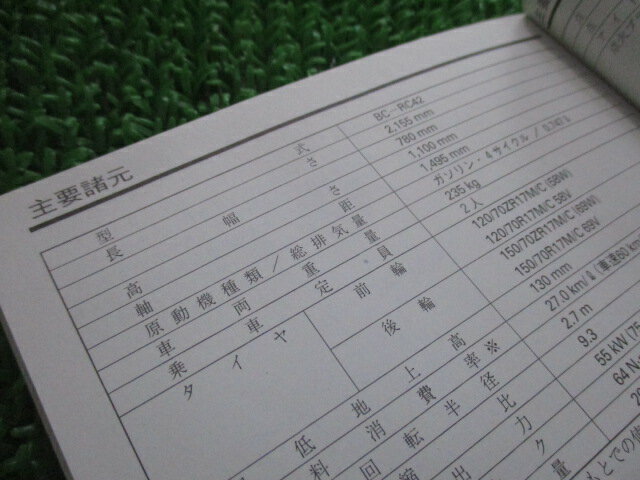 主要諸元
型式 BC-RC42
長さ 2,155 mm
幅 780 mm
高さ 1,100 mm
軸距 1,495 mm
原動機種類/総排気量 ガソリン・4サイクル/0.747ℓ
車両重量 235 kg
乗車定員 2人
タイヤ 前輪 120/70ZR17M/C (58W)
120/70R17M/C 58V
後輪 150/70ZR17M/C (69W)
150/70R17M/C 69V
最低地上高 130 mm
燃料消費率※ 27.0 km/ℓ (車速60 k
回転半径 2.7 m
縮比 9.3
出力 55 kW (75
ク 64 N
量 20
もとでの使